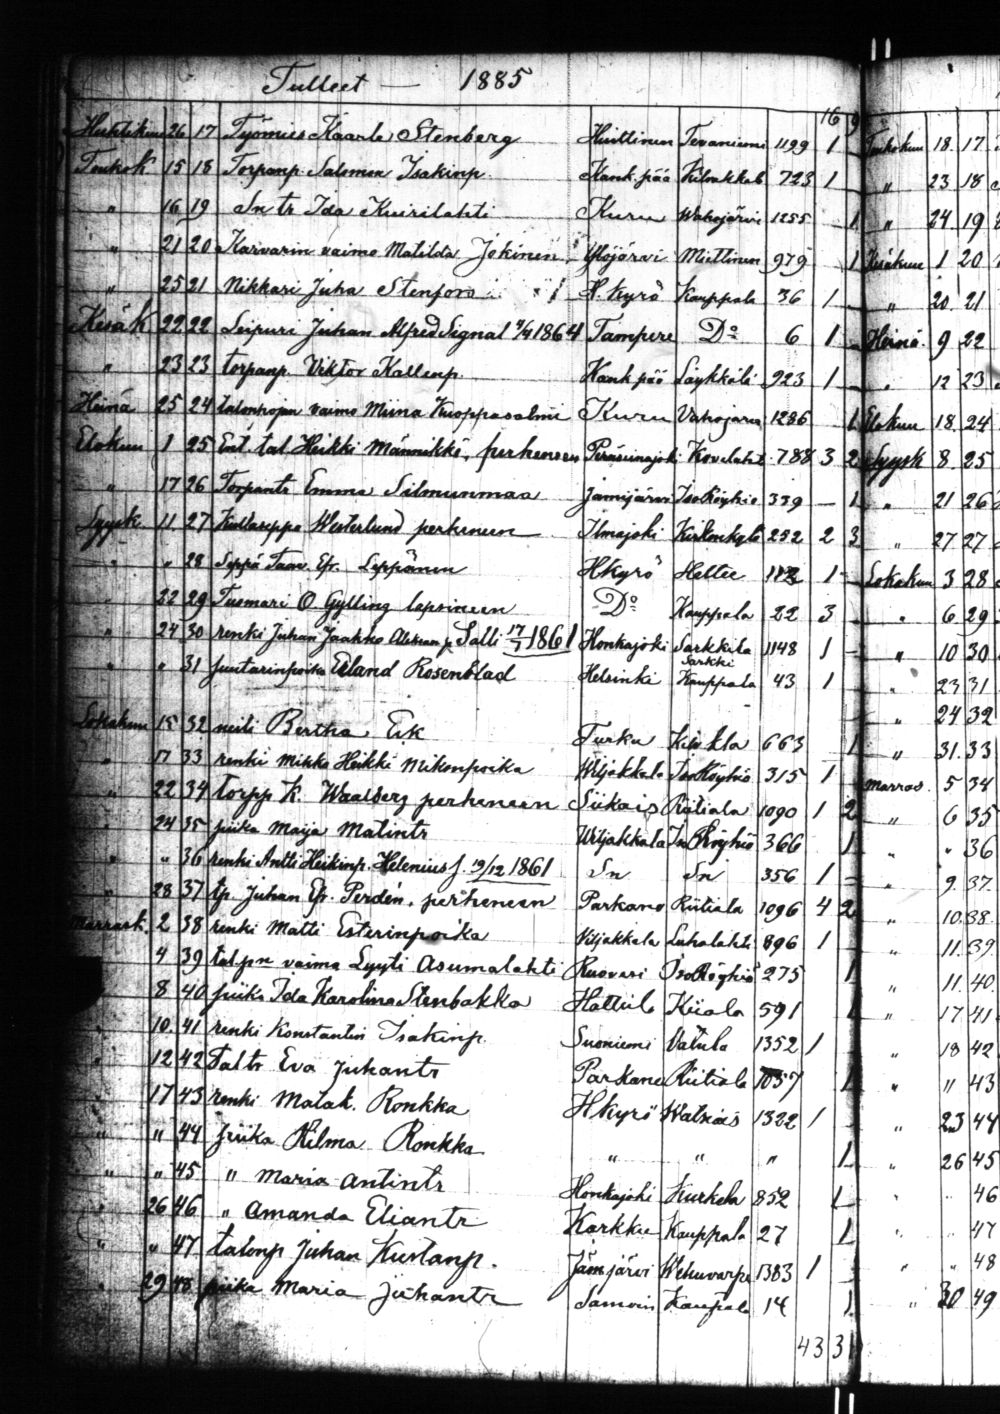 Tulleet — 1885
16 9
Huhtikuu 26 17 Työmies Kaarle Stenberg Huittinen Tevaniemi 1199 1
Toukok 15 18 Torpanp. Salomon Isakinp. Kank.pää 723 1
" 16 19 Sn tr Ida Kuirilahti Kuru Wahojärvi 1255 1
" 21 20 Karvarin vaimo Matilda Jokinen Ylöjärvi Miettinen 979 1
" 25 21 Nikkari Juha H.kyrö Kauppala 36 1
Kesäk 22 22 Leipuri Juhan Alfred Signal 1864 Tampere Do 6 1
" 23 23 torpanp. Viktor Kallenp. Kank.pää 923 1
Heinä 25 24 talonpojan vaimo Miina Kuoppasalmi Kuru Vahojärvi 1286 1
Elokuu 1 25 Ent. tal Heikki Männikkö, perheneen Peräseinäjoki Kovelahti 788 3 2
" 17 26 Torpantr Emma Silmunmaa Jämijärvi IsoRöyhiö 339 — 1
Syysk. 11 27 Kultaseppä Westerlund perheneen Ilmajoki Kirkonkylä 252 2 3
" " 28 Seppä Taav. Efr. Leppänen Hkyrö 1
" 22 29 Tuomari O. Gylling lapsineen Do Kauppala 22 3
" 24 30 renki Juhan Jaakko Salli 17/7 1861 Honkajoki Sarkkila 1148 1
Sarkki
" " 31 Suutarinpoika Erland Rosenblad Helsinki Kauppala 43 1
Lokakuu 15 32 neiti Bertha Ek Turku 663 1
" 17 33 renki Mikko Heikki Mikonpoika Wiljakkala IsoRöyhiö 315 1
" 22 34 torpp K. Waalberg perheneen Siikais Riitiala 1090 1 2
" 24 35 piika Maija Matintr Wiljakkala IsoRöyhiö 366 1
" " 36 renki Antti Heikinp. Helenius f. 19/12 1861 Sn Sn 356 1 —
" 28 37 tp. Juhan Ef. Perdén, perheneen Parkano Riitiala 1096 4 2
Marrask. 2 38 renki Matti Esterinpoika Viljakkala Luhalahti 896 1
4 39 talpn vaimo Lyyti Asumalahti Ruovesi IsoRöyhiö 275 1
8 40 piika Ida Karolina Stenbakka Hattula Kiiala 591 1
10. 41 renki Konstantin Isakinp. Suoniemi Vatula 1352 1
" 12 42 Taltr Eva Juhantr Parkano Riitiala 1057 1
" 17 43 renki Matak. Ronkka Hkyrö 1322 1
" " 44 piika Hilma Ronkka " " " 1
" " 45 " Maria Antintr Honkajoki Kurkela 852 1
" 26 46 " Amanda Eliantr Karkku Kauppala 27 1
" " 47 talonp Juhan Kustanp. Jämijärvi 1383 1
" 29 48 piika Maria Juhantr Kauppala 14 1
43 31
Toukokuu 18 17
" 23 18
" 24 19
Kesäkuu 1 20
" 20. 21
Heinä. 9 22
" 12 23
Elokuu 18. 24
Syysk 8. 25
" 21 26
" 27 27
Lokakuu 3 28
" 6 29
" 10 30
" 23 31
" 24 32
" 31. 33
Marras. 5 34
" 6 35
" " 36
" 9. 37
" 10. 38
" 11. 39
" 11. 40
" 17 41
" 18 42
" " 43
" 23 44
" 26 45
" 46
" 47
" " 48
" 30 49